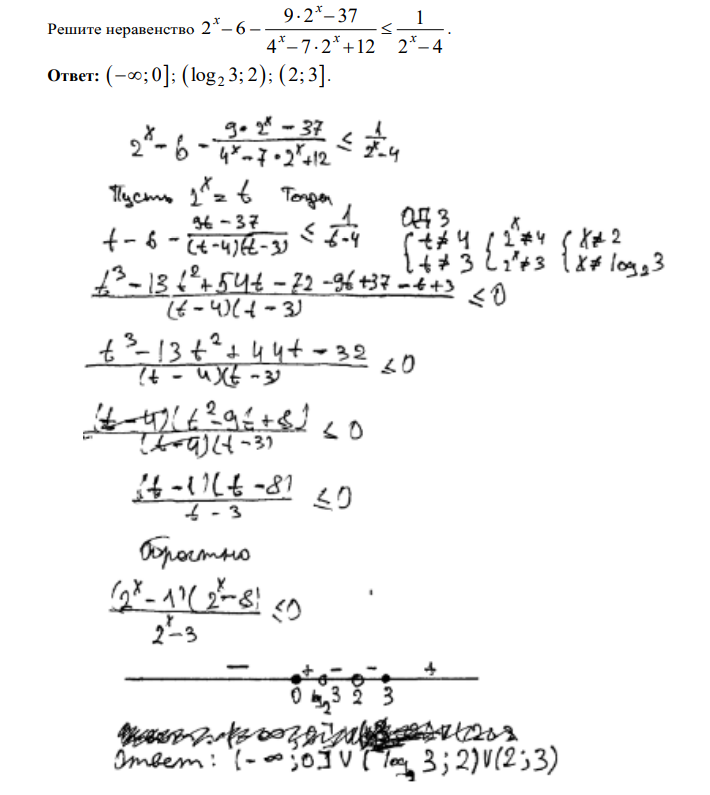 Решите неравенство 2^x − 6 − (9·2^x − 37)/(4^x − 7·2^x + 12) ≤ 1/(2^x − 4).
Ответ: (−∞; 0]; (log₂ 3; 2); (2; 3].
2^x − 6 − (9·2^x − 37)/(4^x − 7·2^x + 12) ≤ 1/(2^x − 4)
Пусть 2^x = t Тогда
t − 6 − (9t − 37)/((t−4)(t−3)) ≤ 1/(t−4)
ОДЗ
{ t ≠ 4 { 2^x ≠ 4 { x ≠ 2
{ t ≠ 3 { 2^x ≠ 3 { x ≠ log₂ 3
(t³ − 13t² + 54t − 72 − 9t + 37 − t + 3)/((t−4)(t−3)) ≤ 0
(t³ − 13t² + 44t − 32)/((t−4)(t−3)) ≤ 0
(t−4)(t² − 9t + 8)/((t−4)(t−3)) ≤ 0
(t−1)(t−8)/(t−3) ≤ 0
Обратно
(2^x − 1)(2^x − 8)/(2^x − 3) ≤ 0
− + − − +
0 log₂3 2 3
Ответ: (−∞; 0] ∪ (log₂ 3; 2) ∪ (2; 3)